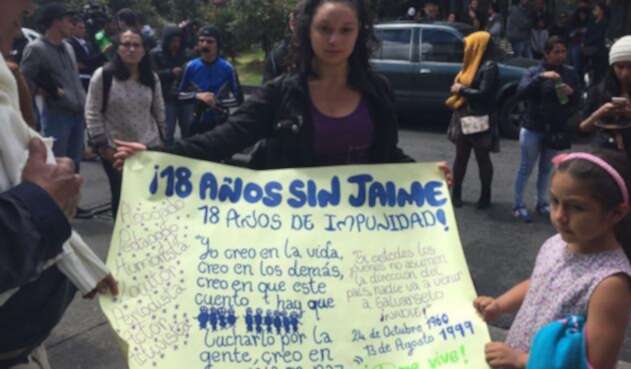 ¡18 AÑOS SIN JAIME
18 AÑOS DE IMPUNIDAD!
Abogado
Pedagogo
Humorista
"Yo creo en la vida,
creo en los demás,
creo en que este
cuento hay que
lucharlo por la
gente, creo en
Si ustedes los
jóvenes no asumen
la dirección del
país, nadie va a venir
a salvárselo
24 de Octubre 1960
13 de Agosto 1999
vive!